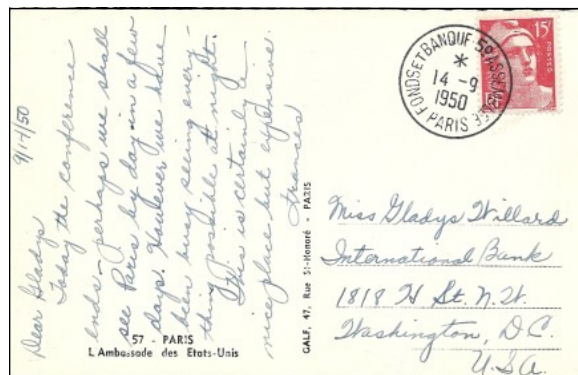 9/14/50
Dear Gladys
Today the conference
ends - perhaps we shall
see Paris by day in a few
days. However we have
been busy seeing every-
thing possible at night.
This is certainly a
nice place but expensive.
Frances
57 - PARIS
L'Ambassade des Etats-Unis
GALF, 47, Rue St-Honoré - PARIS
FONDS ET BANQUE 5e ASSEMBLEE
*
14 - 9
1950
PARIS
15F
POSTES
Miss Gladys Willard
International Bank
1818 H St. N.W.
Washington, D.C.
U.S.A.